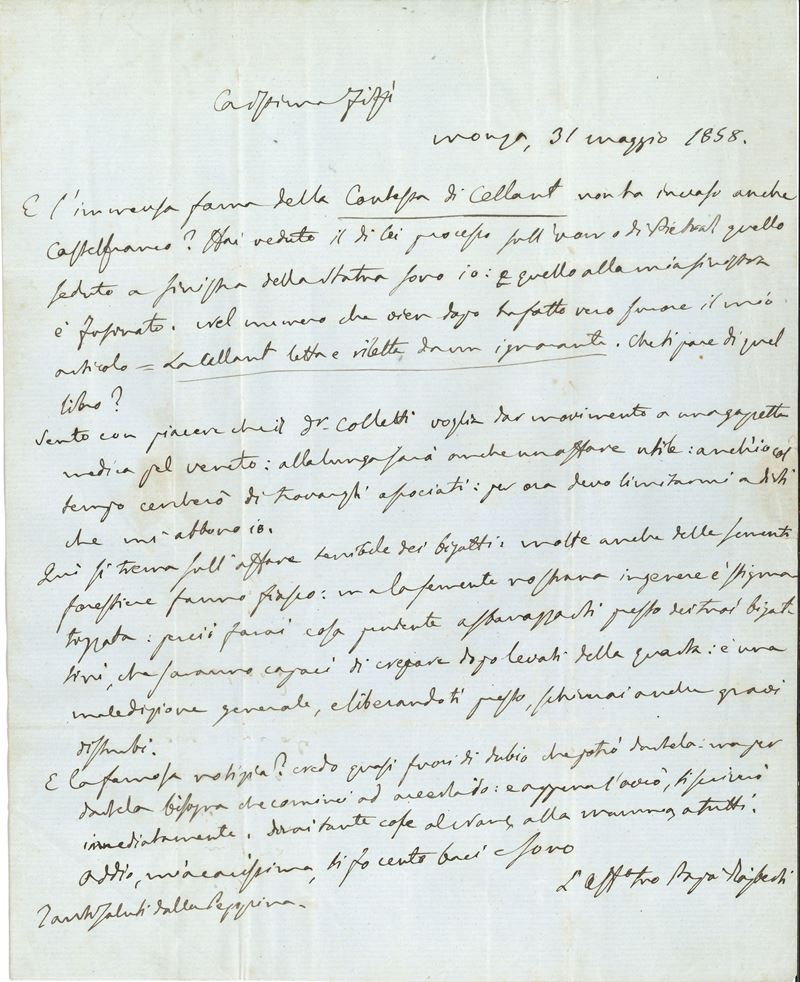 Carissima Fifì
Monza, 31 maggio 1858.
E l'immensa fama della Contessa di Cellant non ha invaso anche
Castelfranco? Hai veduto il di lei processo sull'uomo di Pietra? quello
seduto a sinistra della statua sono io: e quello alla mia sinistra
è Fusinato. Nel numero che vien dopo ha fatto vero furore il mio
articolo = La Cellant letta e riletta da un ignorante. Che ti pare di quel
libro?
Sento con piacere che il Dr. Colletti voglia dar movimento a una gazzetta
medica pel veneto: alla lunga sarà anche un affare utile: anch'io col
tempo cercherò di trovargli associati: per ora devo limitarmi a dirti
che mi abbono io.
Qui si trema sull'affare terribile dei bigatti: molte anche delle sementi
forestiere fanno fiasco: ma la semente nostrana in genere è stigma
tizzata: perciò farai cosa prudente a sbarazzarti presto dei tuoi bigat-
tini, che saranno capaci di crepare dopo levati della quarta: è una
maledizione generale, e liberandoti presto, schiverai anche gravi
disturbi.
E la famosa notizia? credo quasi fuori di dubio che potrò dartela: ma per
dartela bisogna che cominci ad accertarlo: e appena l'avrò, ti scriverò
immediatamente. Dirai tante cose al alla mamma, a tutti.
Addio, mia carissima, ti fo cento baci e sono
L'aff.mo tuo Papà Raiberti
Tanti saluti dalla Peppina.